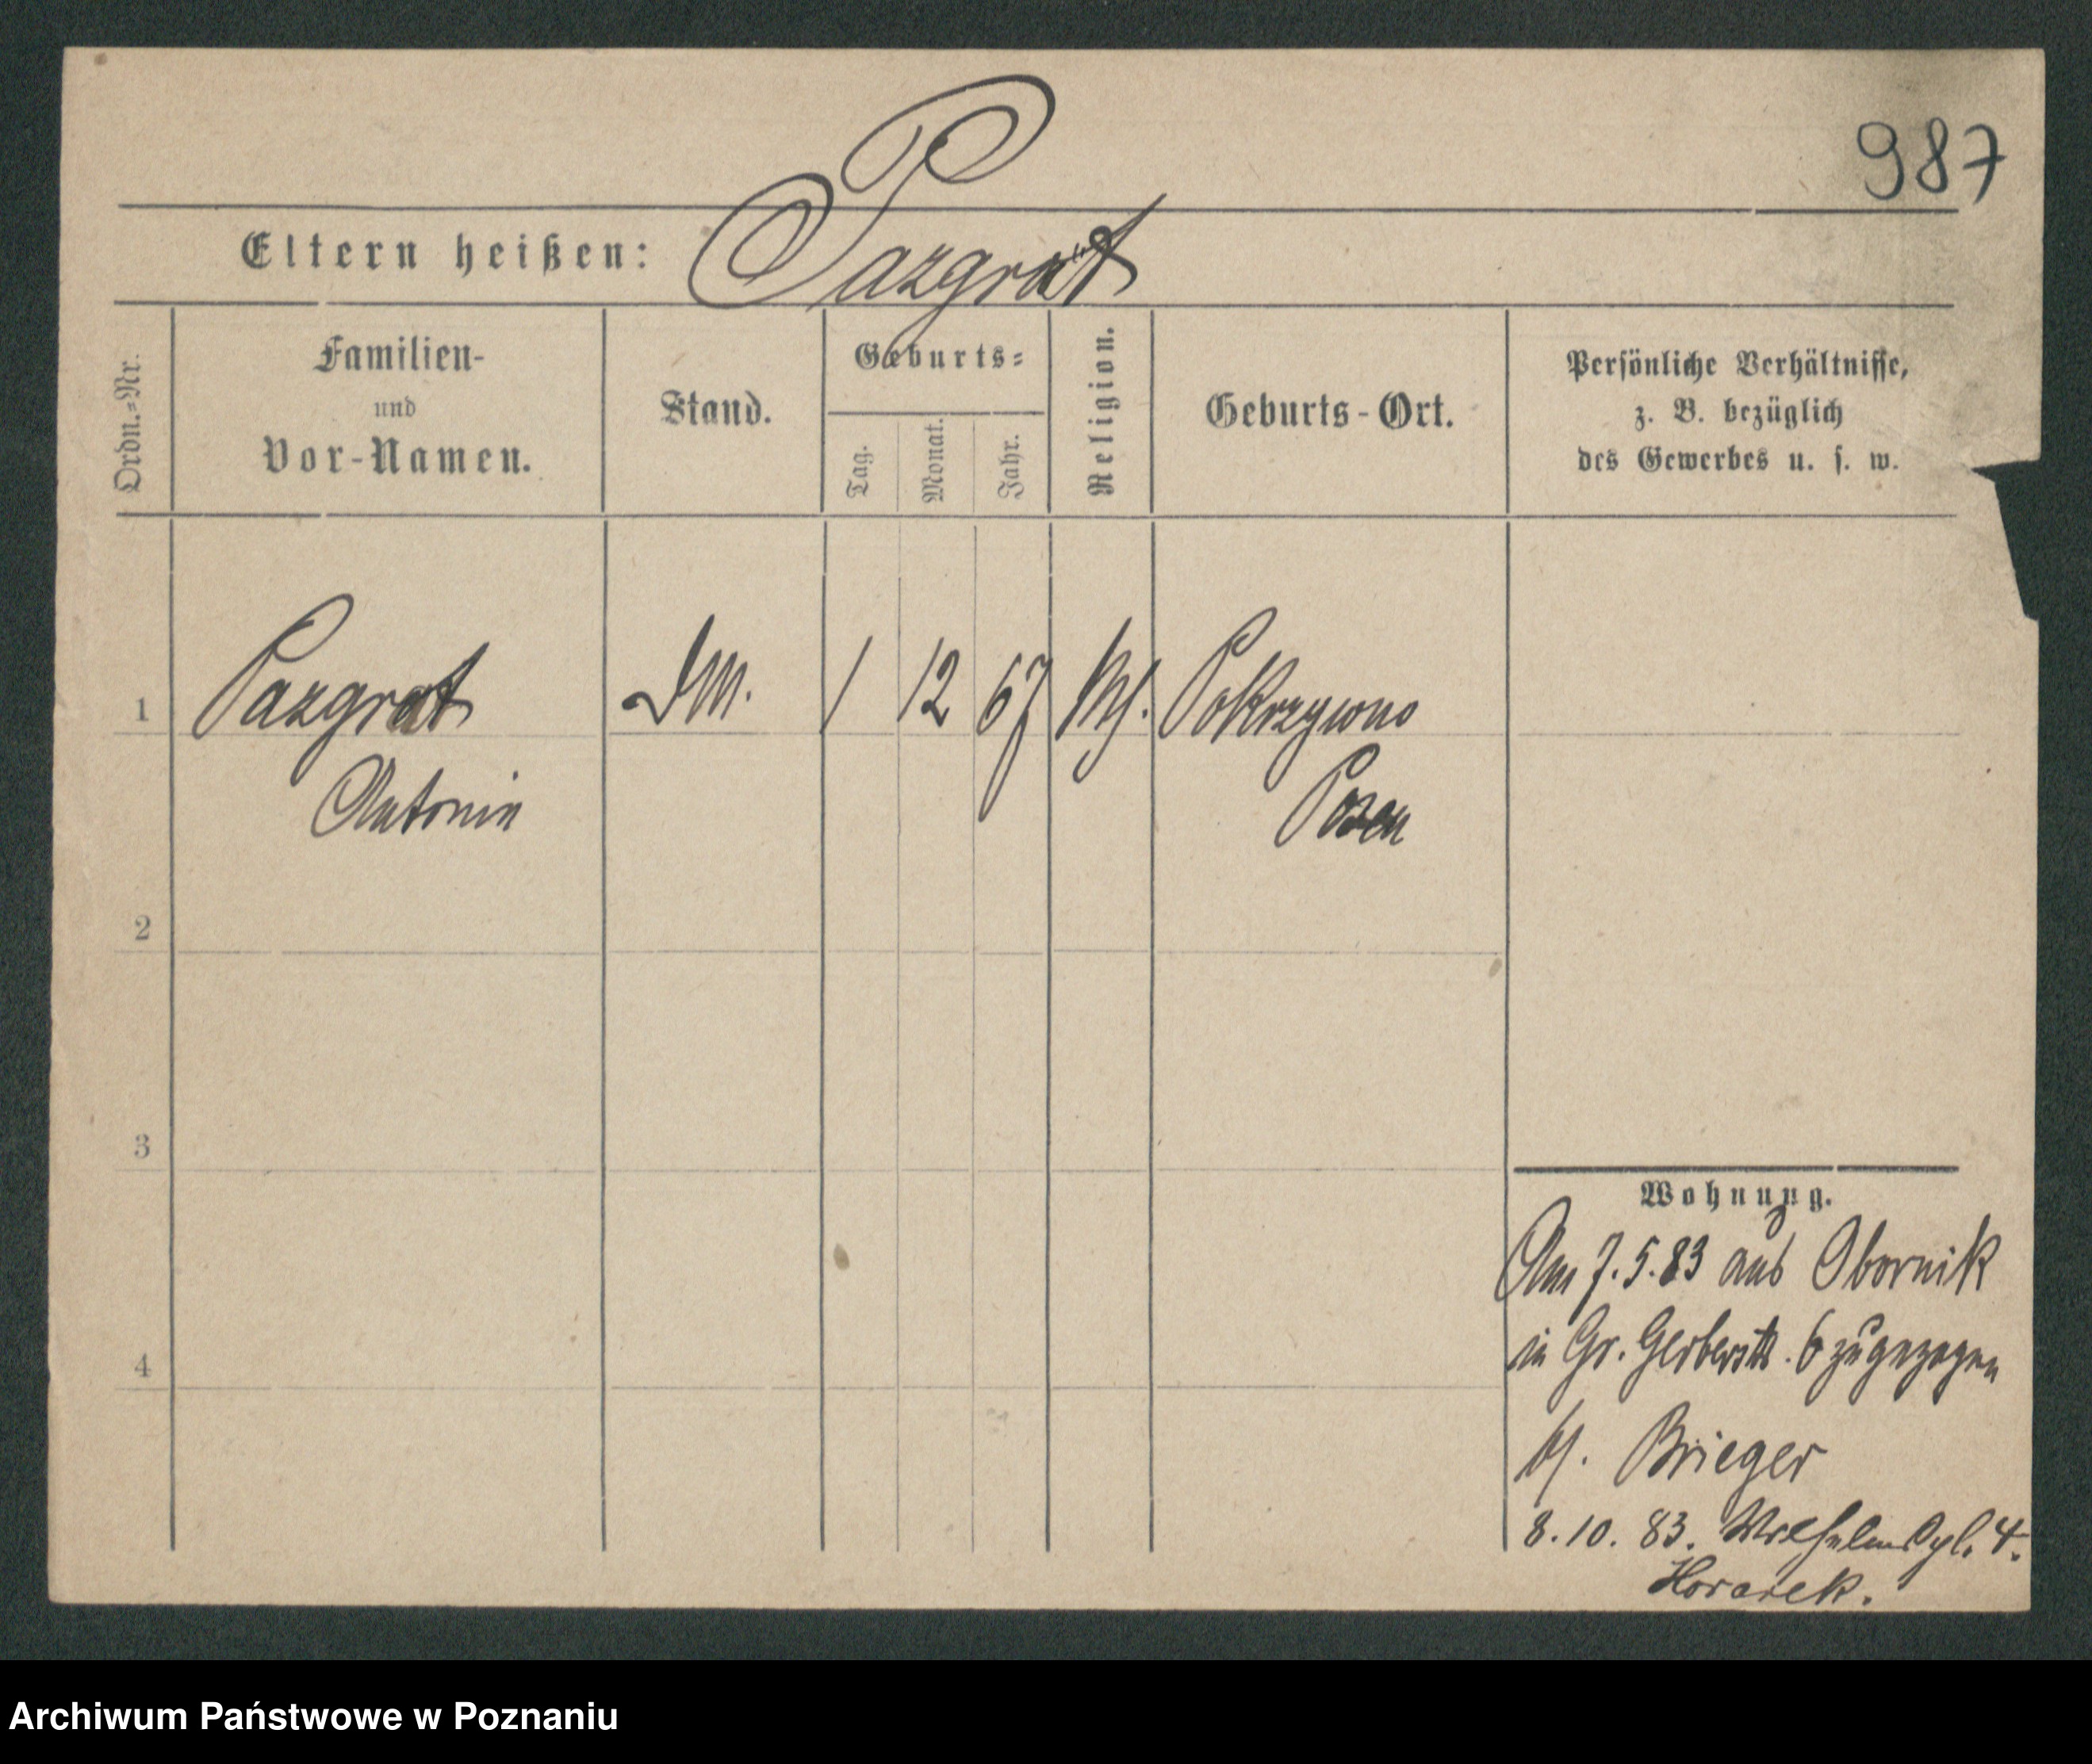 987
Eltern heißen: Pazgrat
Ordn.=Nr.
Familien-
und
Vor-Namen.
Stand.
Geburts=
Tag.
Monat.
Jahr.
Religion.
Geburts-Ort.
Persönliche Verhältnisse,
z. B. bezüglich
des Gewerbes u. s. w.
1 Pazgrat 1 12 67 Pokrzywno
Antonin
Posen
2
3
4
Wohnung.
Am 7.5.83 aus Obornik
in Gr. Gerberstr. 6 zugezogen
Brieger
8.10.83. Wilhelmspl. 4.
Archiwum Państwowe w Poznaniu